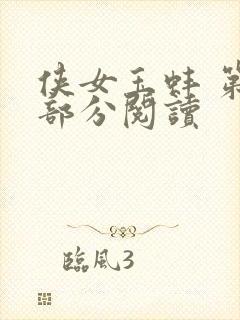 侠女玉蚌 第
部分閱讀
臨風3